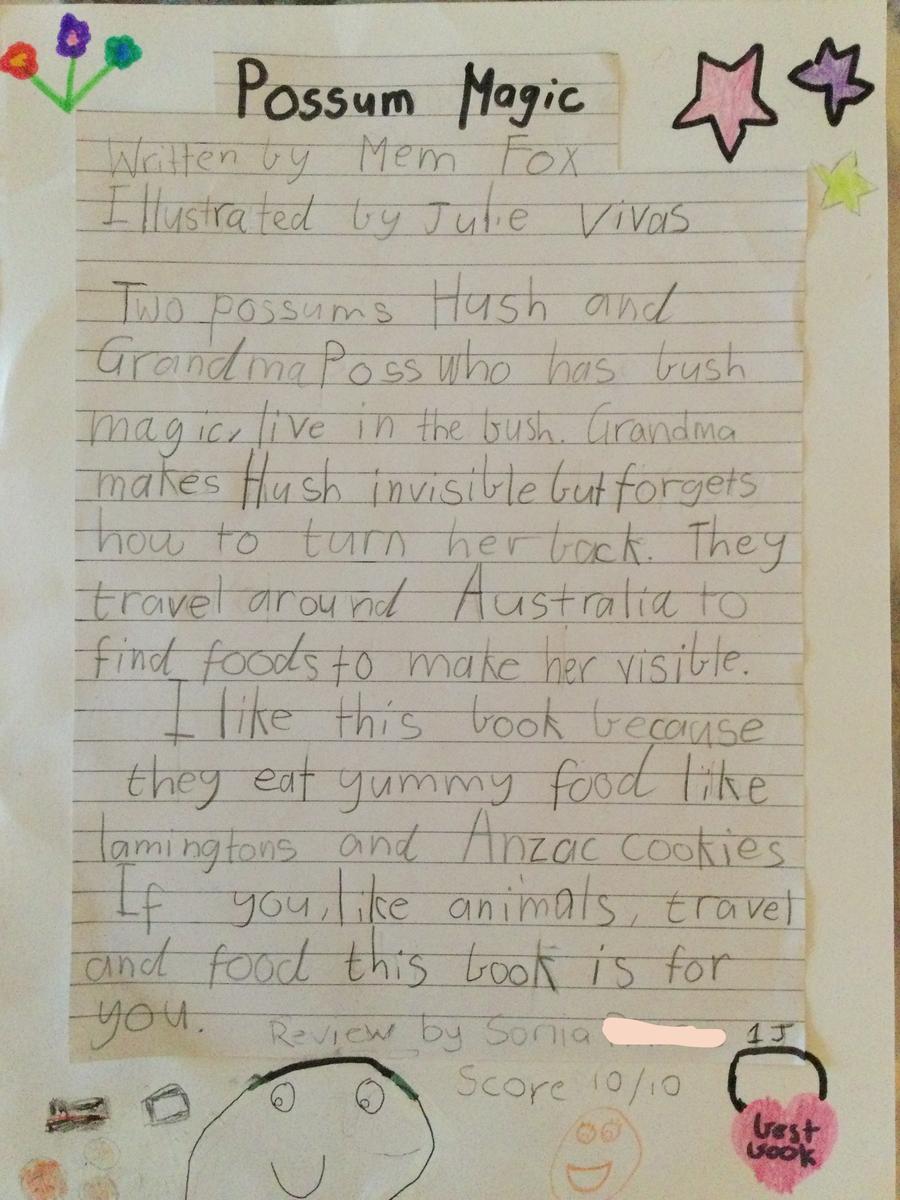 Possum Magic
Written by Mem Fox
Illustrated by Julie Vivas
Two possums Hush and
Grandma Poss who has bush
magic, live in the bush. Grandma
makes Hush invisible but forgets
how to turn her back. They
travel around Australia to
find foods to make her visible.
I like this book because
they eat yummy food like
lamingtons and Anzac cookies
If you, like animals, travel
and food this book is for
you.
Review by Sonia 1J
Score 10/10
best
book